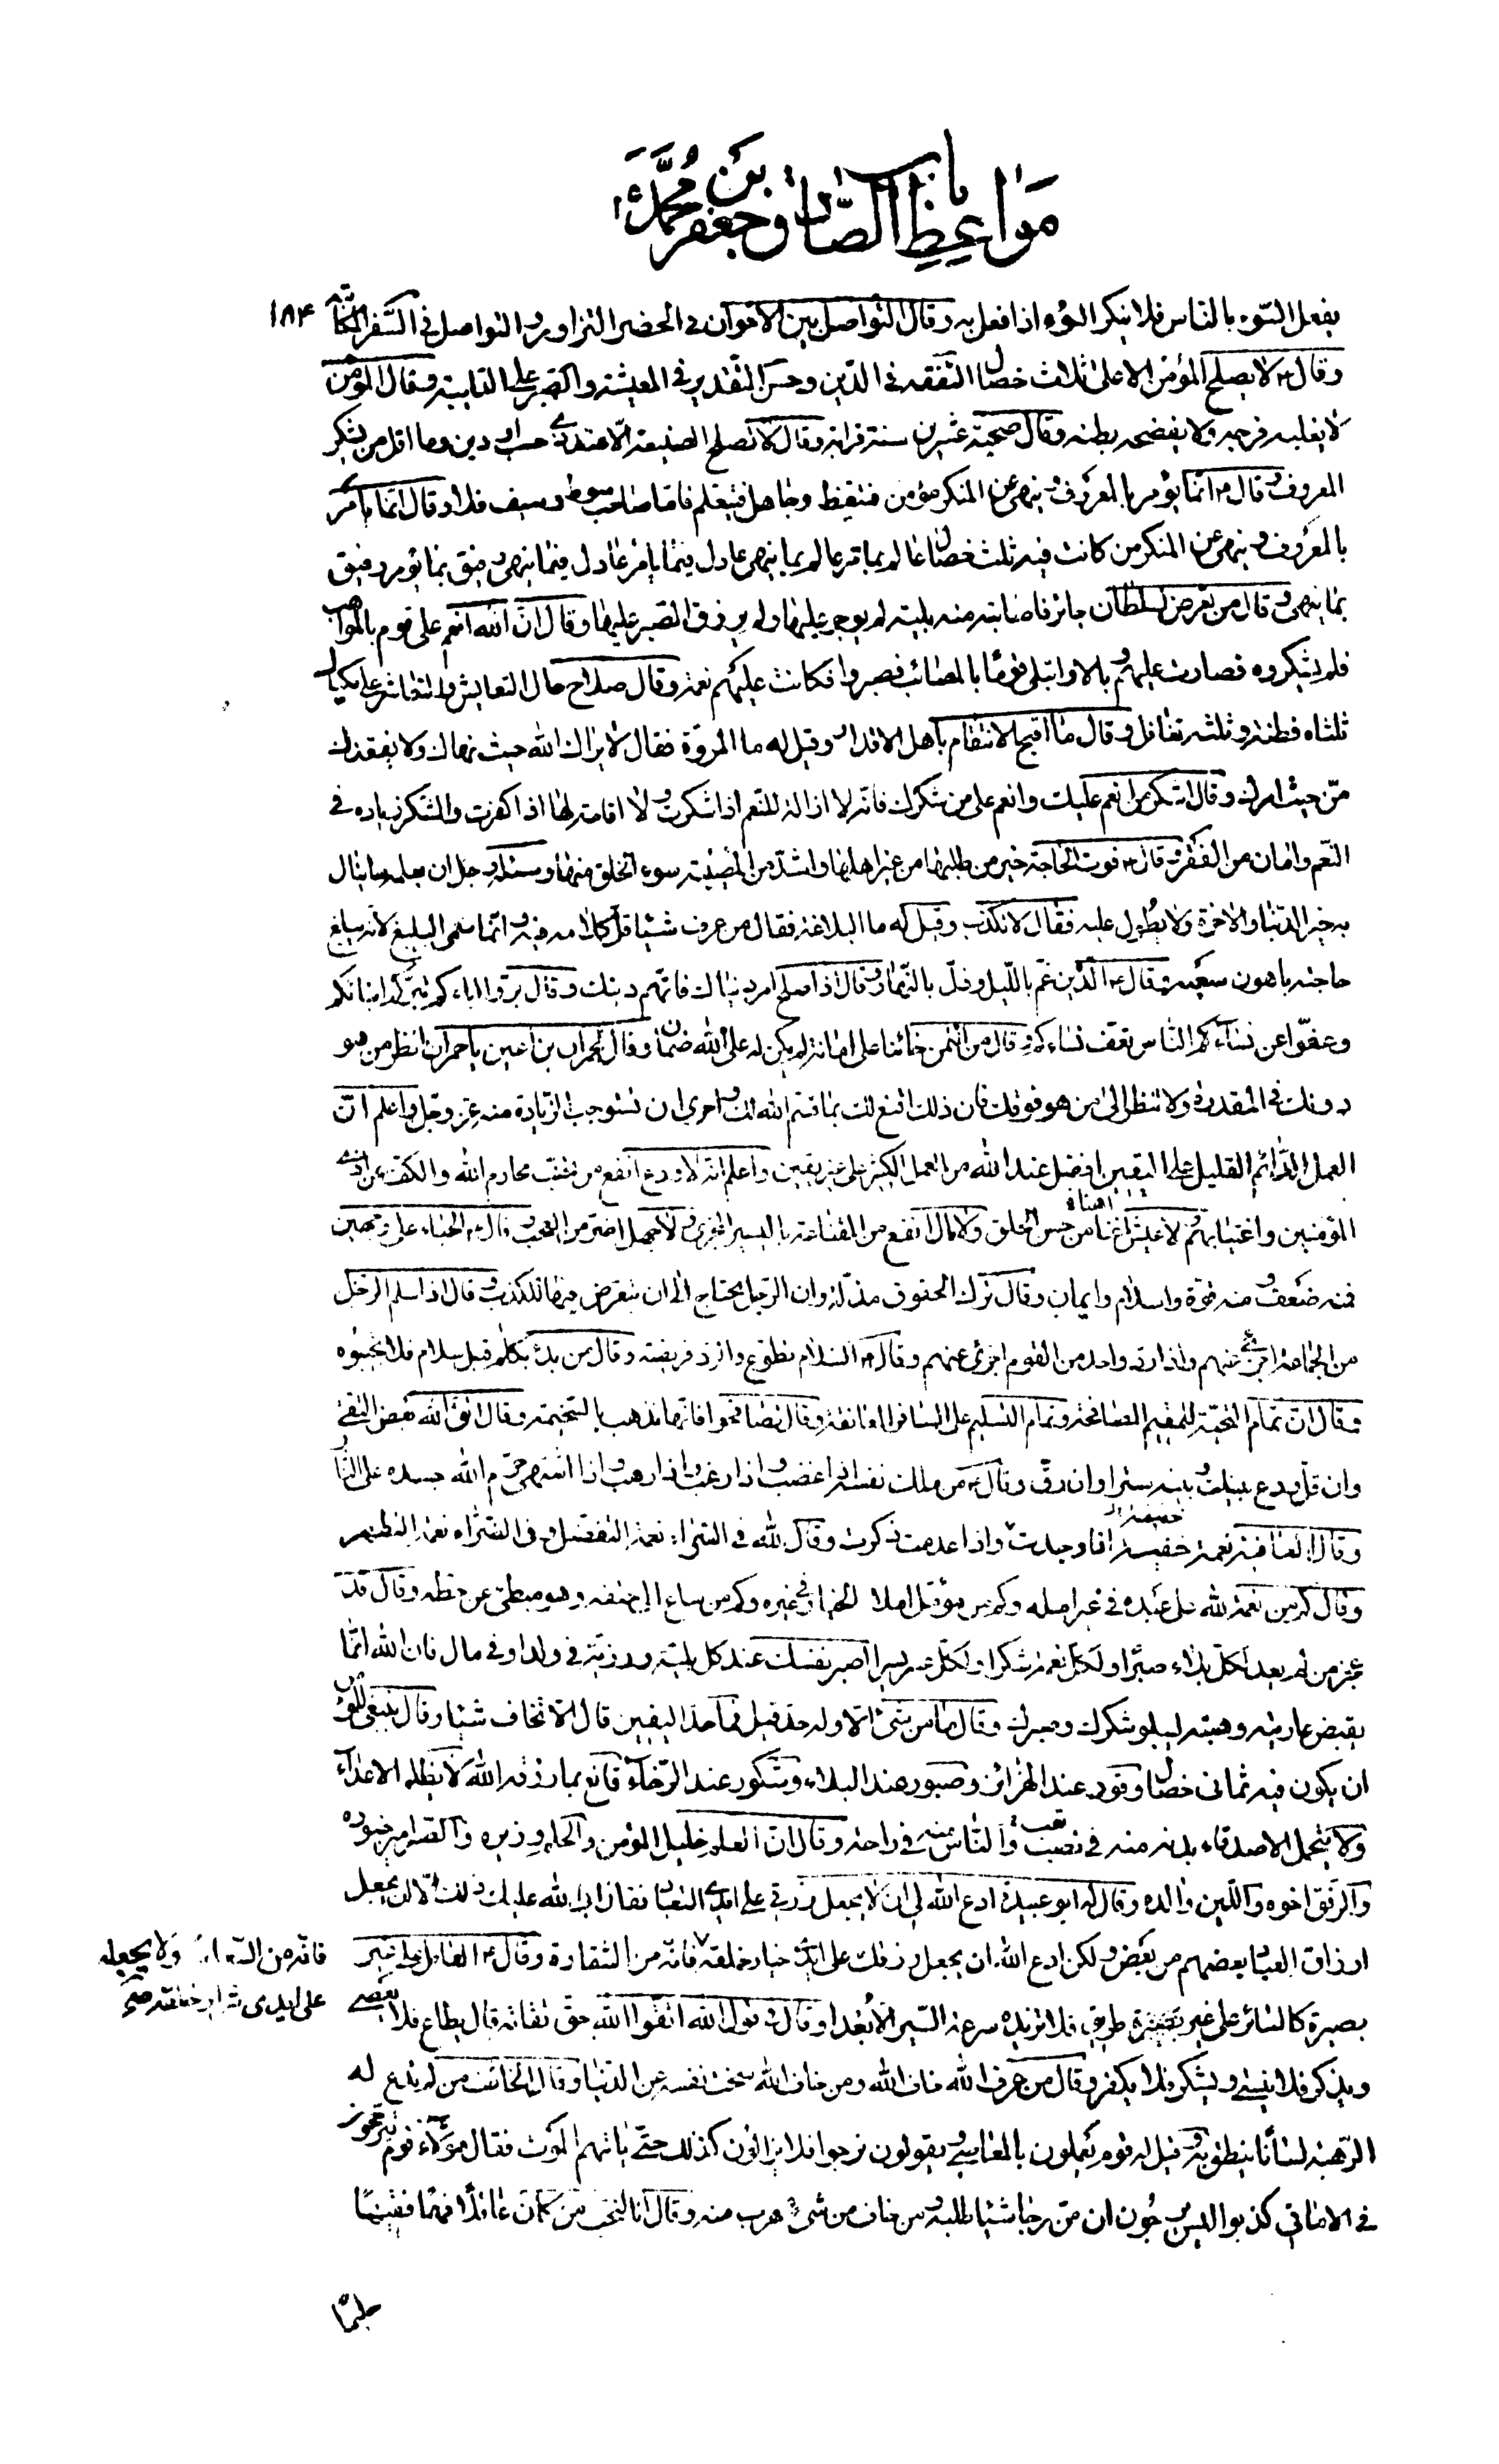 باب
مَواعِظِ الصّادِق جعفر بن مُحمّد ع
١٨٤
يفعل السّوء بالناس فلا ينكر السّوء اذا فعل به وقال التواصل بين الاخوان في الحضر التزاور والتواصل في السّفر المكاتبة
وقال ع لا يصلح المؤمن الا على ثلاث خصال التفقه في الدّين وحسن التقدير في المعيشة والصبر على النائبة وقال المؤمن
لا يغلبه فرجه ولا يفضحه بطنه وقال صحبة عشرين سنة قرابة وقال لا تصلح الصنيعة الّا عند ذي حسب او دين وما اقل من يشكر
المعروف وقال ع انّما يؤمر بالمعروف وينهى عن المنكر مؤمن فيتعظ وجاهل فيتعلم فامّا صاحب سوط وسيف فلا وقال انّما يأمر
بالمعروف وينهى عن المنكر من كانت فيه ثلث خصال عالم بما يأمر عالم بما ينهى عادل فيما يأمر عادل فيما ينهى رفيق بما يؤمر رفيق
بما ينهى وقال من تعرض لسلطان جائر فاصابته منه بليته لم يوجر عليها ولم يرزق الصبر عليها وقال انّ الله انعم على قوم بالمواهب
فلم يشكروه فصارت عليهم وبالا وابتلى قومًا بالمصائب فصبروا فكانت عليهم نعمة وقال صلاح حال التعايش والتعاشر على مكيال
ثلثاه فطنة وثلثه تغافل وقال ما اقبح الانتقام باهل الاقدار وقيل له ما المروّة فقال لا يراك الله حيث نهاك ولا يفقدك
من حيث امرك وقال اشكر من انعم عليك وانعم على من شكرك فانّه لا ازالة للنعم اذا شكرت ولا اقامة لها اذا كفرت والشكر زيادة في
النّعم وامان من الفقر وقال ع فوت الحاجة خير من طلبها من غير اهلها واشدّ من المصيبة سوء الخلق منها وسئله رجل ان يعلمه ما ينال
به خير الدّنيا والاخرة ولا يطول عليه فقال لا تكذب وقيل له ما البلاغة فقال من عرف شيئا قلّ كلامه فيه وانّما سمّى البليغ لانّه يبلغ
حاجته باهون سعيه وقال ع الدّين غم بالليل وذلّ بالنّهار وقال اذا صلح امر دنياك فاتّهم دينك وقال برّوا اباءكم يبرّكم ابناؤكم
وعفّوا عن نساء الناس تعفّ نساءكم وقال من ائتمن خائنا على امانة لم يكن له على الله ضمان وقال لحمران بن اعين يا حمران انظر من هو
دونك في المقدرة ولا تنظر الى من هو فوقك فان ذلك اقنع لك بما قسم الله لك واحرى ان تستوجب الزّيادة منه عز وجل واعلم انّ
العمل الدّائم القليل على اليقين افضل عند الله من العمل الكثير على غير يقين واعلم انّه لا ورع انفع من تجنّب محارم الله والكفّ عن اذى
المؤمنين واغتيابهم ولا عيش اهنأ من حسن الخلق ولا مال انفع من القناعة باليسير المجزي ولا جهل اضرّ من العجب وقال ع الحياء على وجهين
فمنه ضعف ومنه قوّة واسلام وايمان وقال ترك الحقوق مذلة وان الرجل يحتاج الى ان يتعرض فيها للكذب وقال اذا سلم الرّجل
من الجماعة اجزى عنهم واذا ردّ واحد من القوم اجزى عنهم وقال ع السّلام تطوّع والردّ فريضة وقال من بدء بكلام قبل سلام فلا تجيبوه
وقال انّ تمام التحيّة للمقيم المصافحة وتمام التسليم على المسافر المعانقة وقال تصافحوا فانّها تذهب بالسخيمة وقال اتّق الله بعض التقى
وان قلّ ودع بينك وبينه سترا وان رقّ وقال ع من ملك نفسه اذا غضب واذا رغب واذا رهب واذا اشتهى حرّم الله جسده على النّار
وقال العافية نعمة خفيفة اذا وجدت واذا عدمت ذكرت وقال لله في السّراء نعمة التفضل وفي الضرّاء نعمة التطهير
وقال كم من نعمة لله على عبده في غير امله وكم من مؤمّل املا الخيار في غيره وكم من ساع الى حتفه وهو مبطئ عن حظه وقال قد
عجز من لم يعد لكل بلاء صبرا ولكل نعمة شكرا ولكل عسر يسرا اصبر نفسك عند كل بلية ورزية في ولد او في مال فان الله انّما
يقبض عاريته وهبته ليبلو شكرك وصبرك وقال ما من شئ الّا وله حدّ قيل فما حدّ اليقين قال الّا تخاف شيئا وقال ينبغي للمؤمن
ان يكون فيه ثماني خصال وقور عند الهزائز وصبور عند البلاء وشكور عند الرّخاء قانع بما رزقه الله لا يظلم الاعداء
ولا يتحمل الاصدقاء بدنه منه في تعب والنّاس منه في راحة وقال انّ العلم خليل المؤمن والحلم وزيره والصّبر امير جنوده
والرّفق اخوه واللّين والده وقال له ابو عبيدة ادع الله لي ان لا يجعل رزقي على ايدي العباد فقال ابى الله عليك ذلك الّا ان يجعل
ارزاق العباد بعضهم من بعض ولكن ادع الله ان يجعل رزقك على ايدي خيار خلقه فانّه من السّعادة ولا يجعله على ايدي شرار خلقه صح
فانّه من الشقاوة وقال ع العامل على غير
بصيرة كالسّائر على غير طريق فلا تزيده سرعة السّير الّا بُعدا وقال في قول الله اتّقوا الله حقّ تقاته قال يطاع فلا يعصى
ويذكر فلا ينسى ويشكر فلا يكفر وقال من عرف الله خاف الله ومن خاف الله سخت نفسه عن الدّنيا وقال الخائف من لم تدع له
الرّهبة لسانًا ينطق به وقيل له قوم يعملون بالمعاصي ويقولون نرجوا فلا يزالون كذلك حتّى يأتيهم الموت فقال هؤلاء قوم يترجحون
في الاماني كذبوا ليس يرجون ان من رجا شيئا طلبه ومن خاف من شئ هرب منه وقال انّا لنحبّ من كان عاقلًا فهمًا فقيهًا
حليمًا